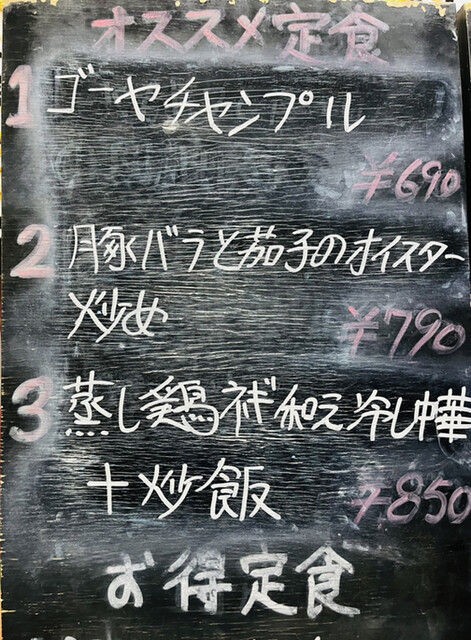 オススメ定食
1 ゴーヤチャンプル
¥690
2 豚バラと茄子のオイスター
炒め ¥790
3 蒸し鶏ネギ和え冷し中華
+炒飯 ¥850
お得定食